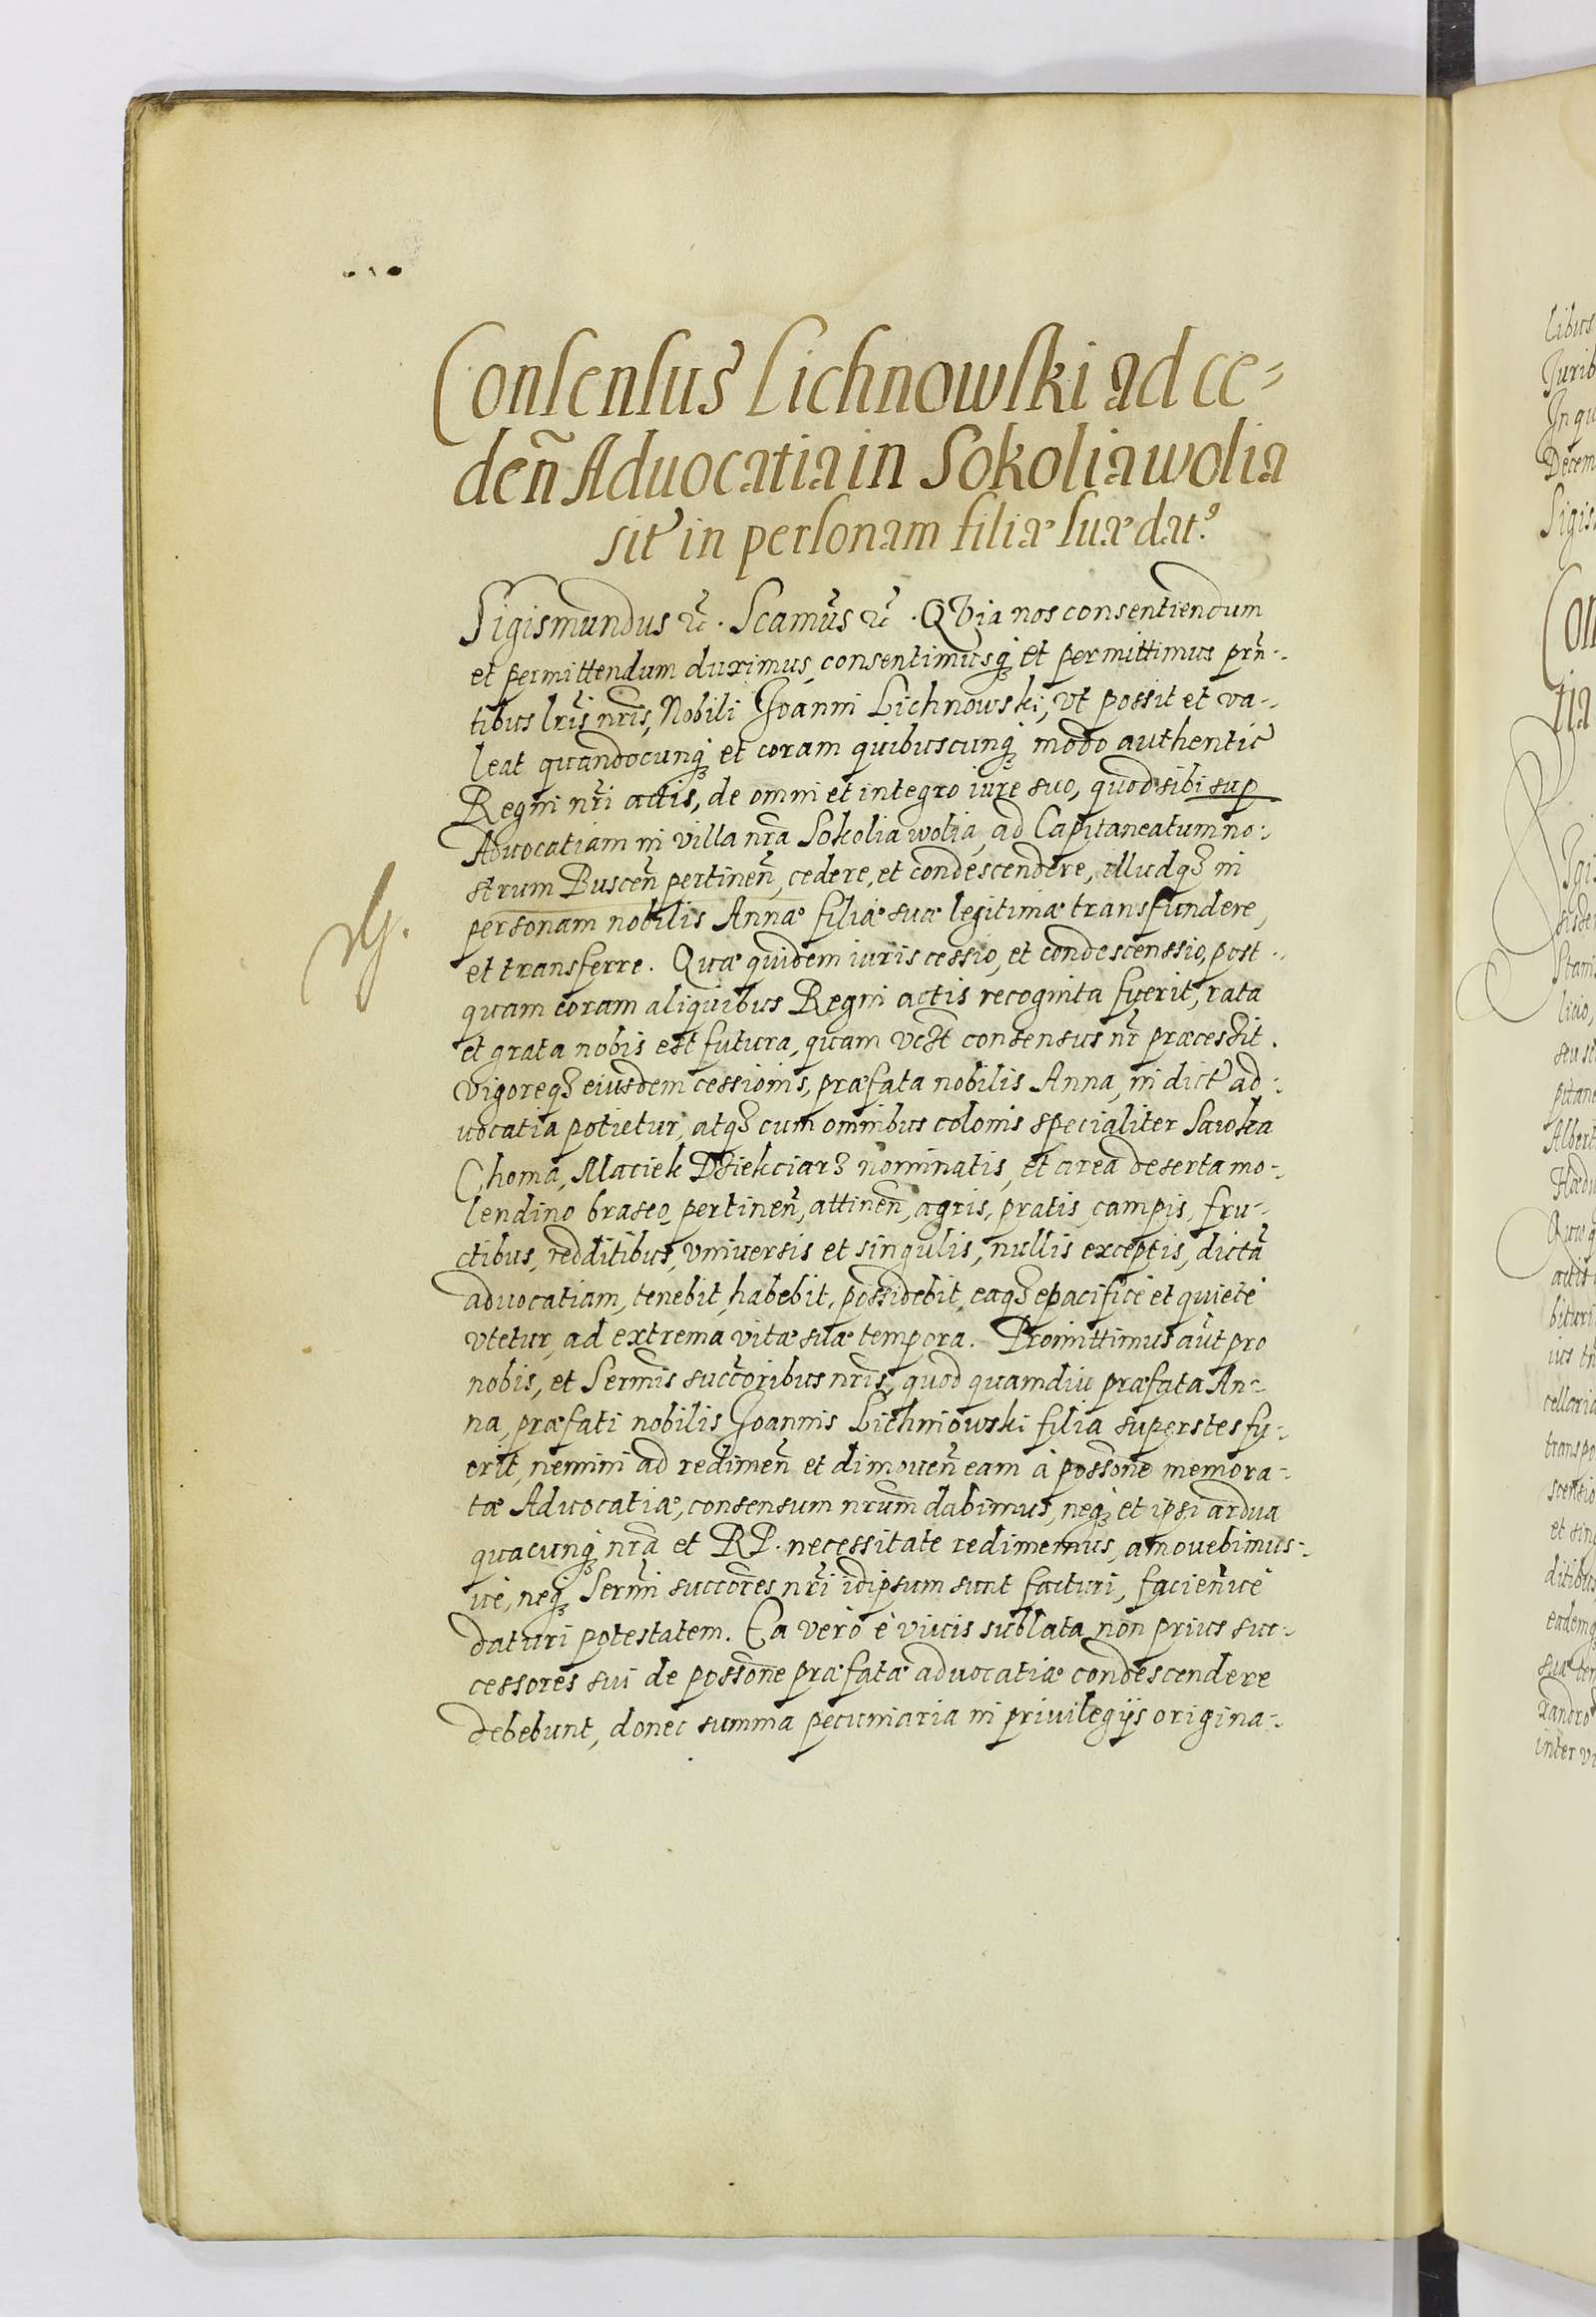 Consensus Lichnowski ad ce-
den̄ Aduocatia in Sokolia wolia
sit in personam filiæ suæ datꝰ
Sigismundus ꝛc̄. Scamus ꝛc̄. QVia nos consentiendum
et permittendum duximus, consentimusq; et permittimus prn̄-
tibus lris nris, Nobili Joanni Lichnowski, vt possit et va-
leat quandocunq; et coram quibuscunq; modo authentic̄
Regni nri actis, de omni et integro iure suo, quod sibi sup
Aduocatiam in villa nra Sokolia wolia, ad Capitaneatum no-
strum Buscen̄ pertinen̄, cedere, et condescendere, illudq3 in
personam nobilis Annæ filiæ suæ legitimæ transfundere,
et transferre. Quæ quidem iuris cessio, et condescenssio, post-
quam coram aliquibus Regni actis recognita fuerit, rata
et grata nobis est futura, quam consensus nr̄ præcessit.
Vigoreq3 eiusdem cessionis, præfata nobilis Anna, in dict ad-
uocatia potietur, atq3 cum omnibus colonis specialiter Sawka
Choma, Maciek Dziekciarz nominatis, et area deserta mo-
lendino braseo, pertinen̄, attinen̄, agris, pratis, campis, fru-
ctibus, redditibus, vniuersis et singulis, nullis exceptis, dictā
aduocatiam, tenebit, habebit, possidebit, eaq3 e pacificè et quietè
vtetur, ad extrema vitæ suæ tempora. Promittimus aut̄ pro
nobis, et Sermis succoribus nris, quod quamdiu præfata An-
na, præfati nobilis Joannis Lichniowski filia superstes fu-
erit, nemini ad redimen̄ et dimouen̄ eam à possone memora-
tæ Aduocatiæ, consensum nrum dabimus, neq; et ipsi ardua
quacunq; nra et RP. necessitate redimemus, amouebimus-
ue, neq; Sermi succores nri idipsum sunt facturi, facien̄ue
daturi potestatem. Ea verò è viuis sublata non prius suc-
cessores sui de possone præfatæ aduocatiæ condescendere
debebunt, donec summa pecuniaria in priuilegijs origina-